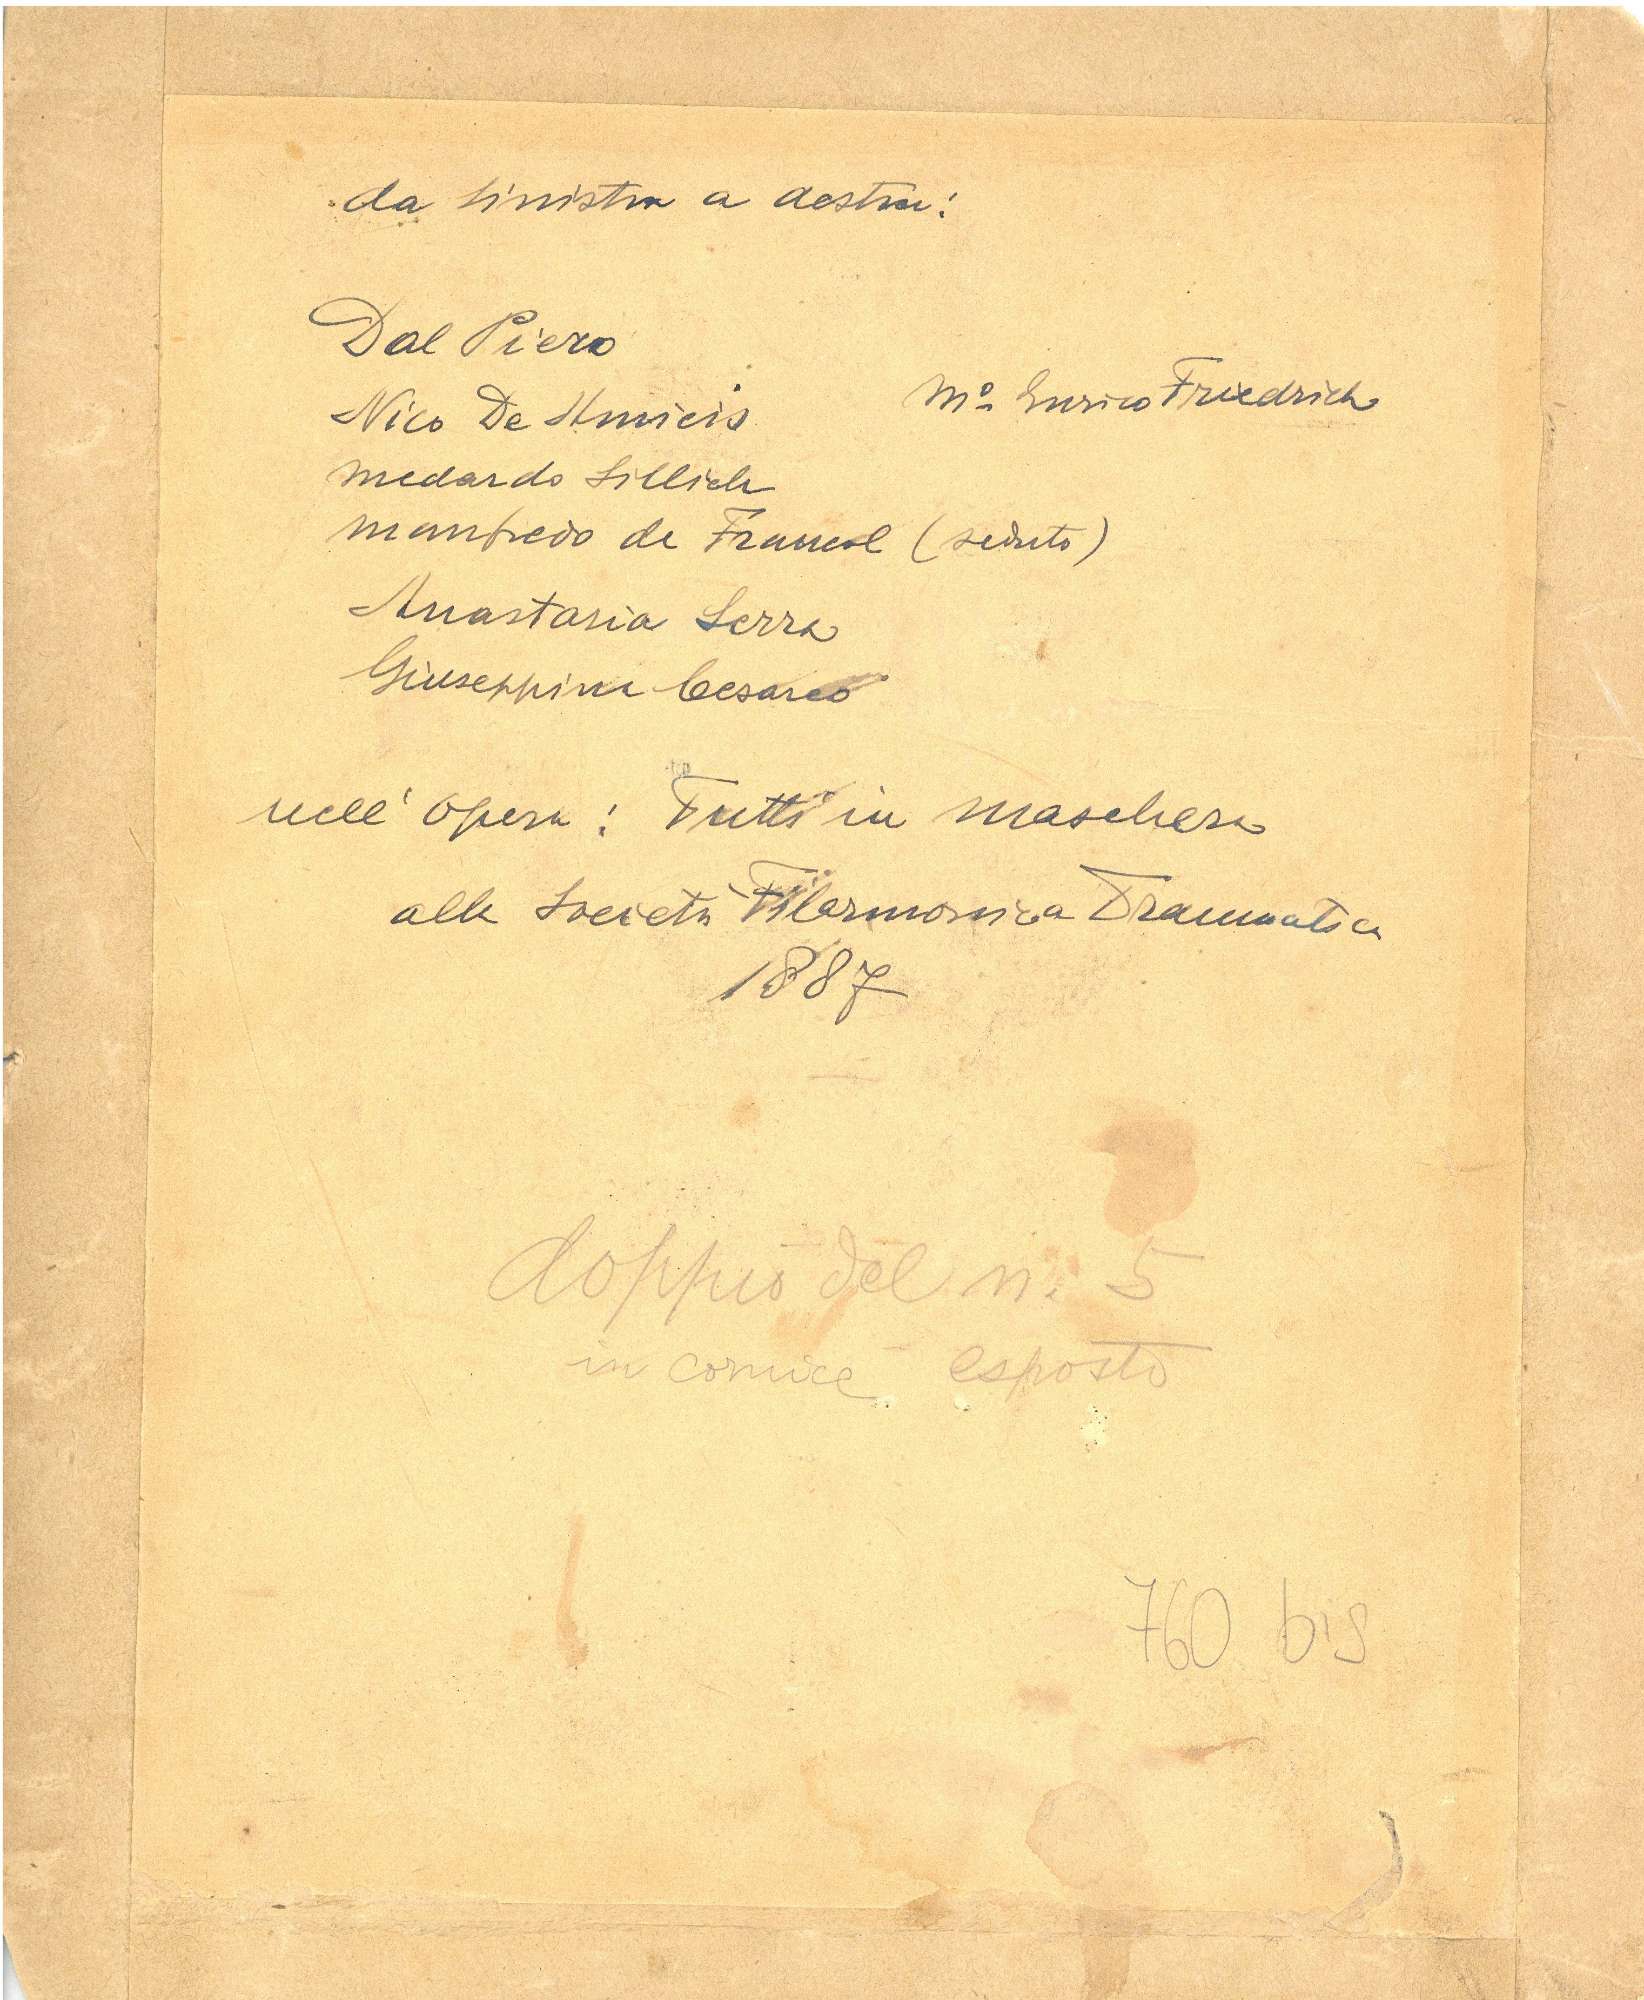 da sinistra a destra:
Dal Piero
Nico De Amicis
Mº Enrico Friedrich
Medardo Sillich
Manfredo de Franceschi (seduto)
Anastasia Serra
Giuseppina Cesareo
nell'opera: Tutti in maschera
alla Società Filarmonica Drammatica
1887
doppio del n. 5
in cornice esposto
760 bis